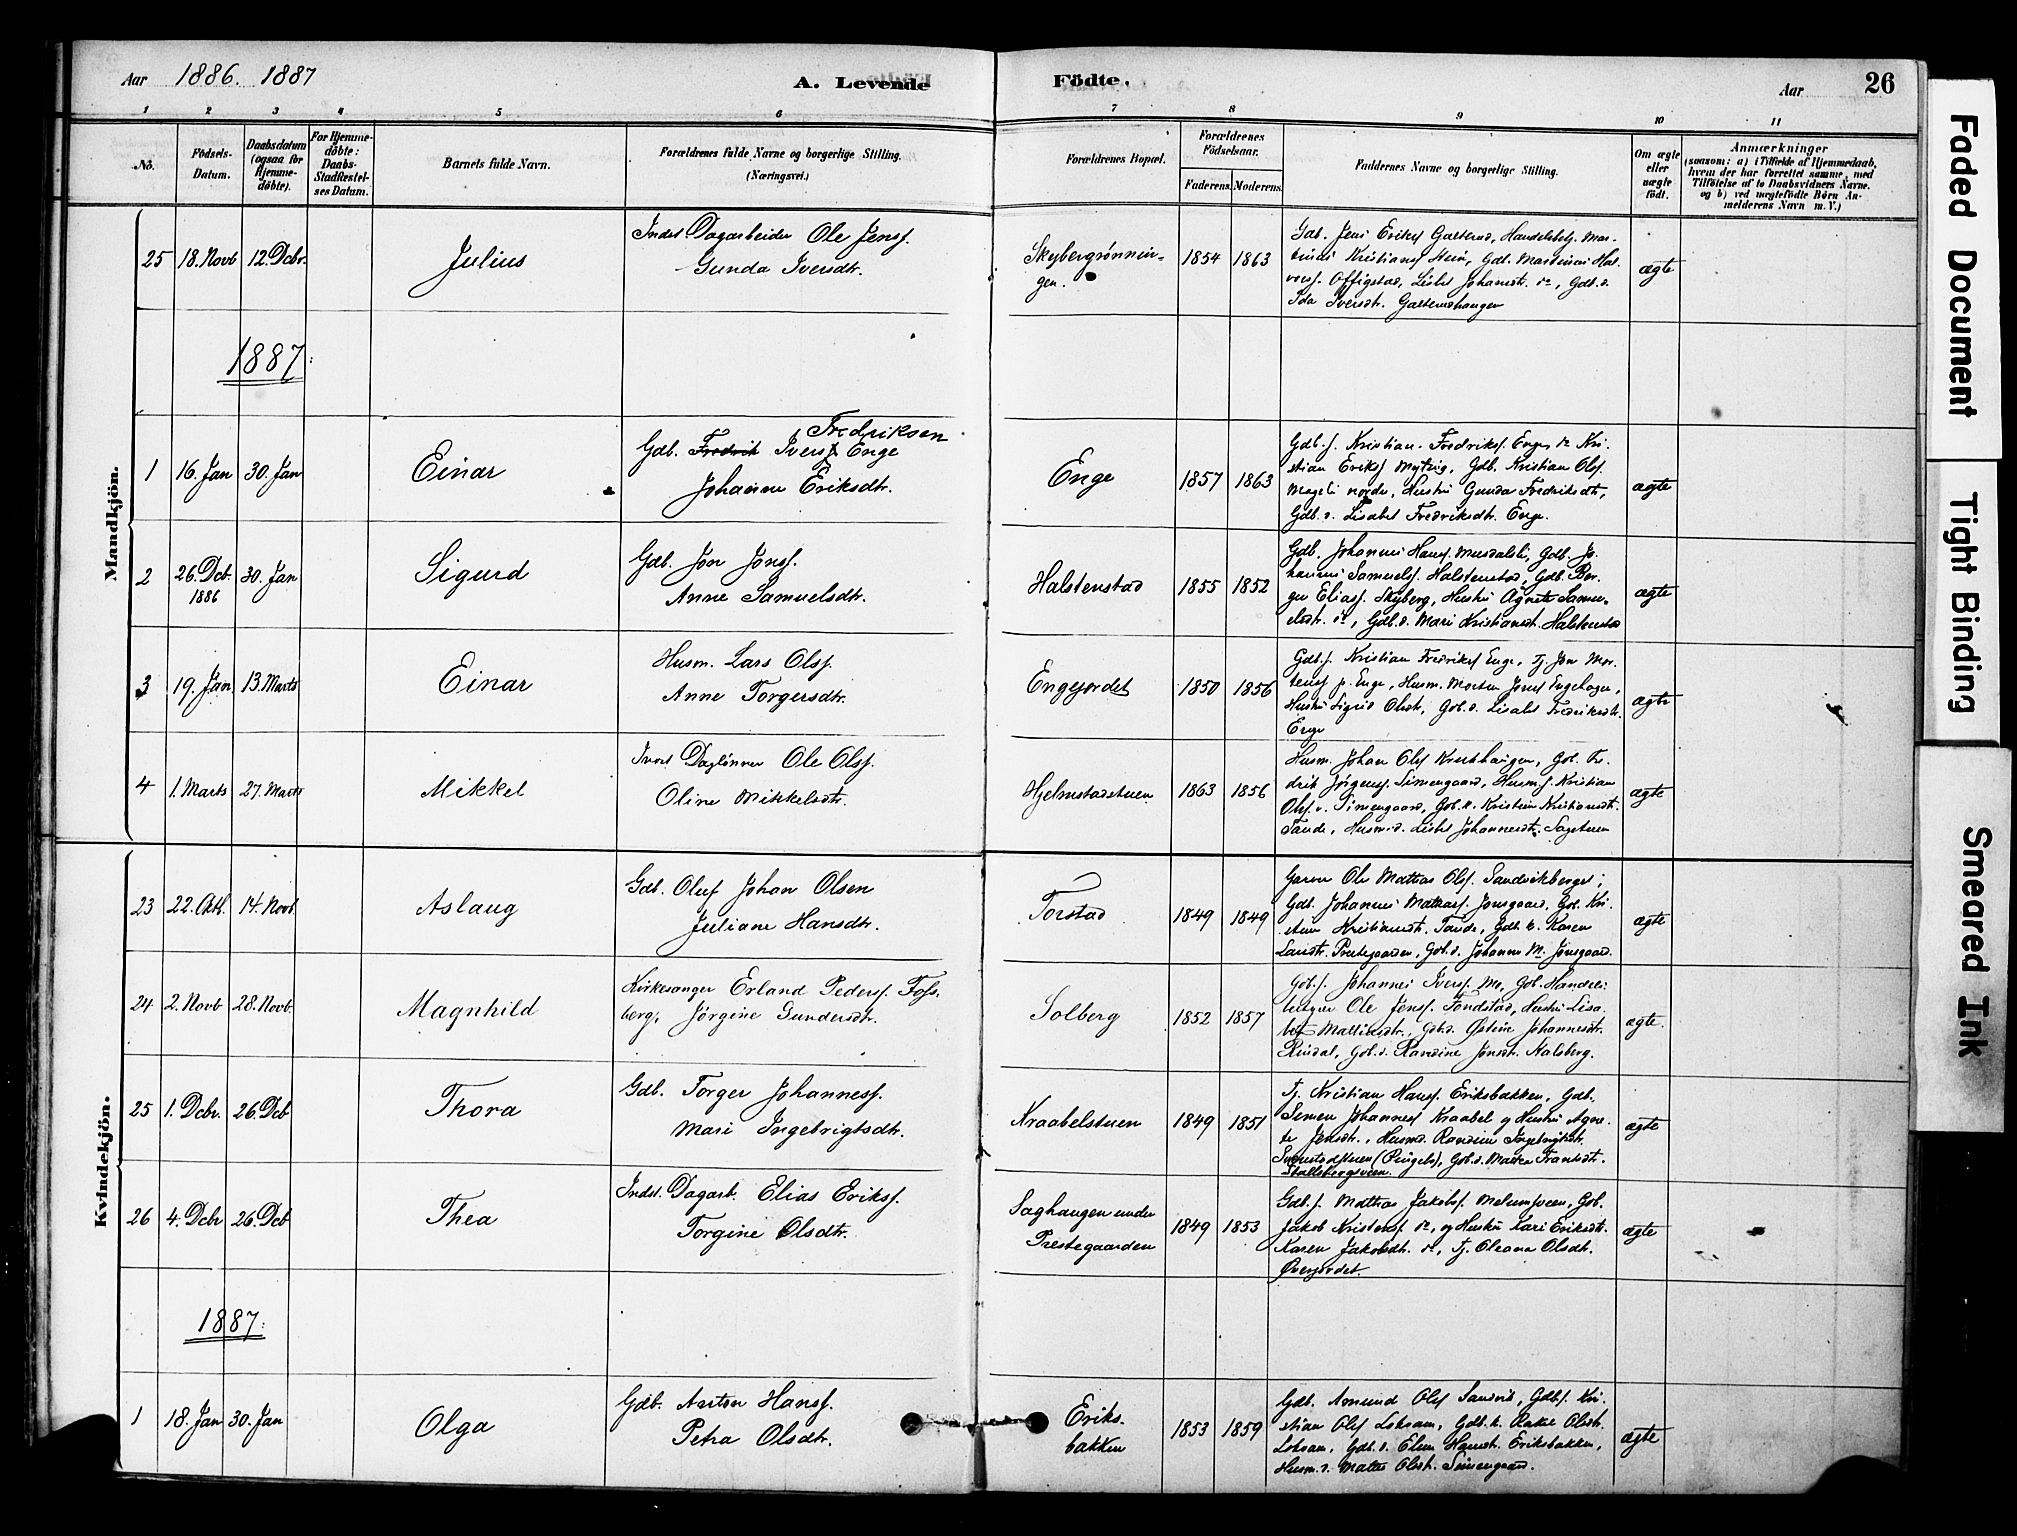 Aar 1886. 1887 A. Levende Födte. Aar 26
1 2 3 4 5 6 7 8 9 10 11
No.
Födsels-
Datum.
Daabsdatum
(ogsaa for
Hjemme-
döbte).
For Hjemme-
döbte:
Daabs-
Stadfæstel-
ses Datum.
Barnets fulde Navn.
Forældrenes fulde Navne og borgerlige Stilling.
(Næringsvei.)
Forældrenes Bopæl.
Forældrenes
Födselsaar.
Faderens. Moderens.
Faddernes Navne og borgerlige Stilling.
Om ægte
eller
uægte
födt.
Anmærkninger
(saasom: a) i Tilfælde af Hjemmedaab,
hvem der har forrettet samme, med
Tilföielse af to Daabsvidners Navne.
og b) ved uægtefödte Börn An-
melderens Navn m. V.)
Mandkjön.
25 18. Novb 12. Dcbr. Julius
Inds. Dagarbeider Ole Jensf.
Gunda Iversdtr.
Skybergrønnin-
gen.
1854 1863
Gdb. Jens Eriksf Galterud, Handelsbetj. Mar-
tinus Kristiansf Huse, Gdb. Martinus Hal-
vorsf. Offigstad, Lisbet Johansdt. do, Gdb.d.
Ida Iversdt. Galterudhaugen
ægte
1887.
1 16. Jan 30. Jan Einar
Fredriksen
Gdb. Fredrik Iversf Enge
Johanne Eriksdtr.
Enge
1857 1863
Gdb.s. Kristian Fredriksf. Enge, do Kri-
stian Eriksf Mytting, Gdb. Kristian Olsf.
Mageli nordre, Hustru Gunda Fredriksdt,
Gdb.d. Lisabet Fredriksdtr. Enge.
ægte
2 26. Dcb. 30. Jan Sigurd
1886
Gdb. Jon Jonsf.
Anne Samuelsdtr.
Halstenstad
1855 1852
Gdb. Johannes Hansf. Musdalsli, Gdb. Jo-
hannes Samuelsf. Halstenstad, Gdb. Bor-
ger Eliasf. Skyberg, Hustru Agnete Samu-
elsdtr. do, Gdb.d. Mari Kristiansdt. Halstenstad
ægte
3 19. Jan 13. Marts Einar
Husm. Lars Olsf.
Anne Torgersdtr.
Engejordet
1850 1856
Gdb.s. Kristian Fredriksf Enge, Tj. Jon Mor-
tensf p. Enge, Husm. Morten Jonsf Engehagen,
Hustru Sigrid Olsdt, Gdb.d. Lisabet Fredriksdtr.
Enge
ægte
4 1. Marts 27. Marts Mikkel
Inds. Dagløнner Ole Olsf.
Oline Mikkelsdtr.
Hjelmstadstuen
1863 1856
Husm. Johan Olsf Krukhaugen, Gdb. Fre-
drik Jørgensf Simengaard, Husm.s. Kristian
Olsf. u. Simengaard, Gdb.k. Kristine Kristiansdt.
Tande, Husm.d. Lisbet Johannesdt. Sagstuen
ægte
Kvindekjön.
23 22. Okt. 14. Novb. Aslaug
Gdb. Oluf Johan Olsen
Juliane Hansdtr.
Torstad
1849 1849
Garver Ole Mathias Olsf. Sandvikberget,
Gdb. Johannes Mathiasf. Jonsgaard, Gdb. Kri-
stine Kristiansdt. Tande, Gdb.k. Karen
Larsdt. Prestegaarden, Gdb.d. Johanne M. Jonsgaard.
ægte
24 2. Novb 28. Novb. Magnhild
Kirkesanger Erland Pedersf. Fos-
berg, Jørgine Gundersdtr.
Solberg
1852 1857
Gdb.s. Johannes Iversf. Mo, Gdb. Handels-
betjen Ole Jensf. Fondstad, Hustru Lisa-
bet Mathisdt., Gdb.d. Østine Johannesdt.
Rindal, Gdb.d. Randine Jonsdt. Stalsberg.
ægte.
25 1. Dcbr. 26. Dcb Thora
Gdb. Torger Johannesf.
Mari Ingebrigtsdtr.
Kraabelstuen
1849 1851
Tj. Kristian Hansf. Eriksbakken, Gdb.
Simen Johannesf Kraabel og Hustru Agne-
te Jensdt., Husmd. Randine Ingebrigtsdt.
(Ringebu), Gdb.d. Marka Frantsdt.
Stallsbergsveen.
ægte
26 4. Dcbr 26. Dcb Thea
Inds. Dagarb. Elias Eriksf.
Torgine Olsdtr.
Saghaugen under
Prestegaarden
1849 1853
Gdb.s. Mathias Jakobsf. Melumsveen, Gdb.
Jakob Kristensf do, og Hustru Kari Eriksdt.
Karen Jakobsdt. do, Tj. Oleana Olsdt.
Øverjordet.
ægte
1887.
1 18. Jan 30. Jan Olga
Gdb. Anton Hansf.
Petra Olsdtr.
Eriks-
bakken
1853 1859
Gdb. Amund Olsf Sandvik, Gdb.s. Kri-
stian Olsf Loksam, Gdb.k. Rakel Olsdt.
Loksam, Gdb.d. Elen Hansdt. Eriksbakken,
Husm.d. Mathea Olsdt. Simengaard.
ægte
Faded Document
Tight Binding
Smeared Ink